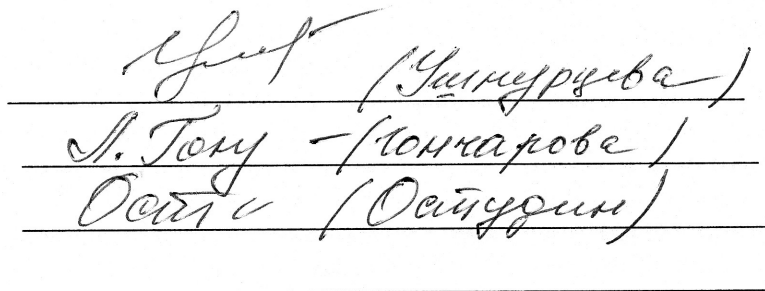 (Ушнурцева)
Л. Гонч - (Гончарова)
Ост (Остудин)